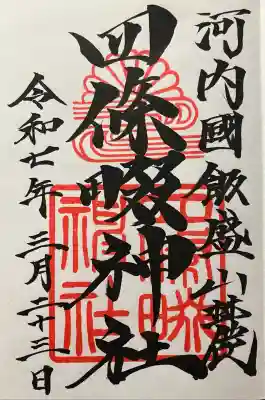 河内國飯盛山麓
四條畷神社
令和七年 三月二十三日
四條畷神社